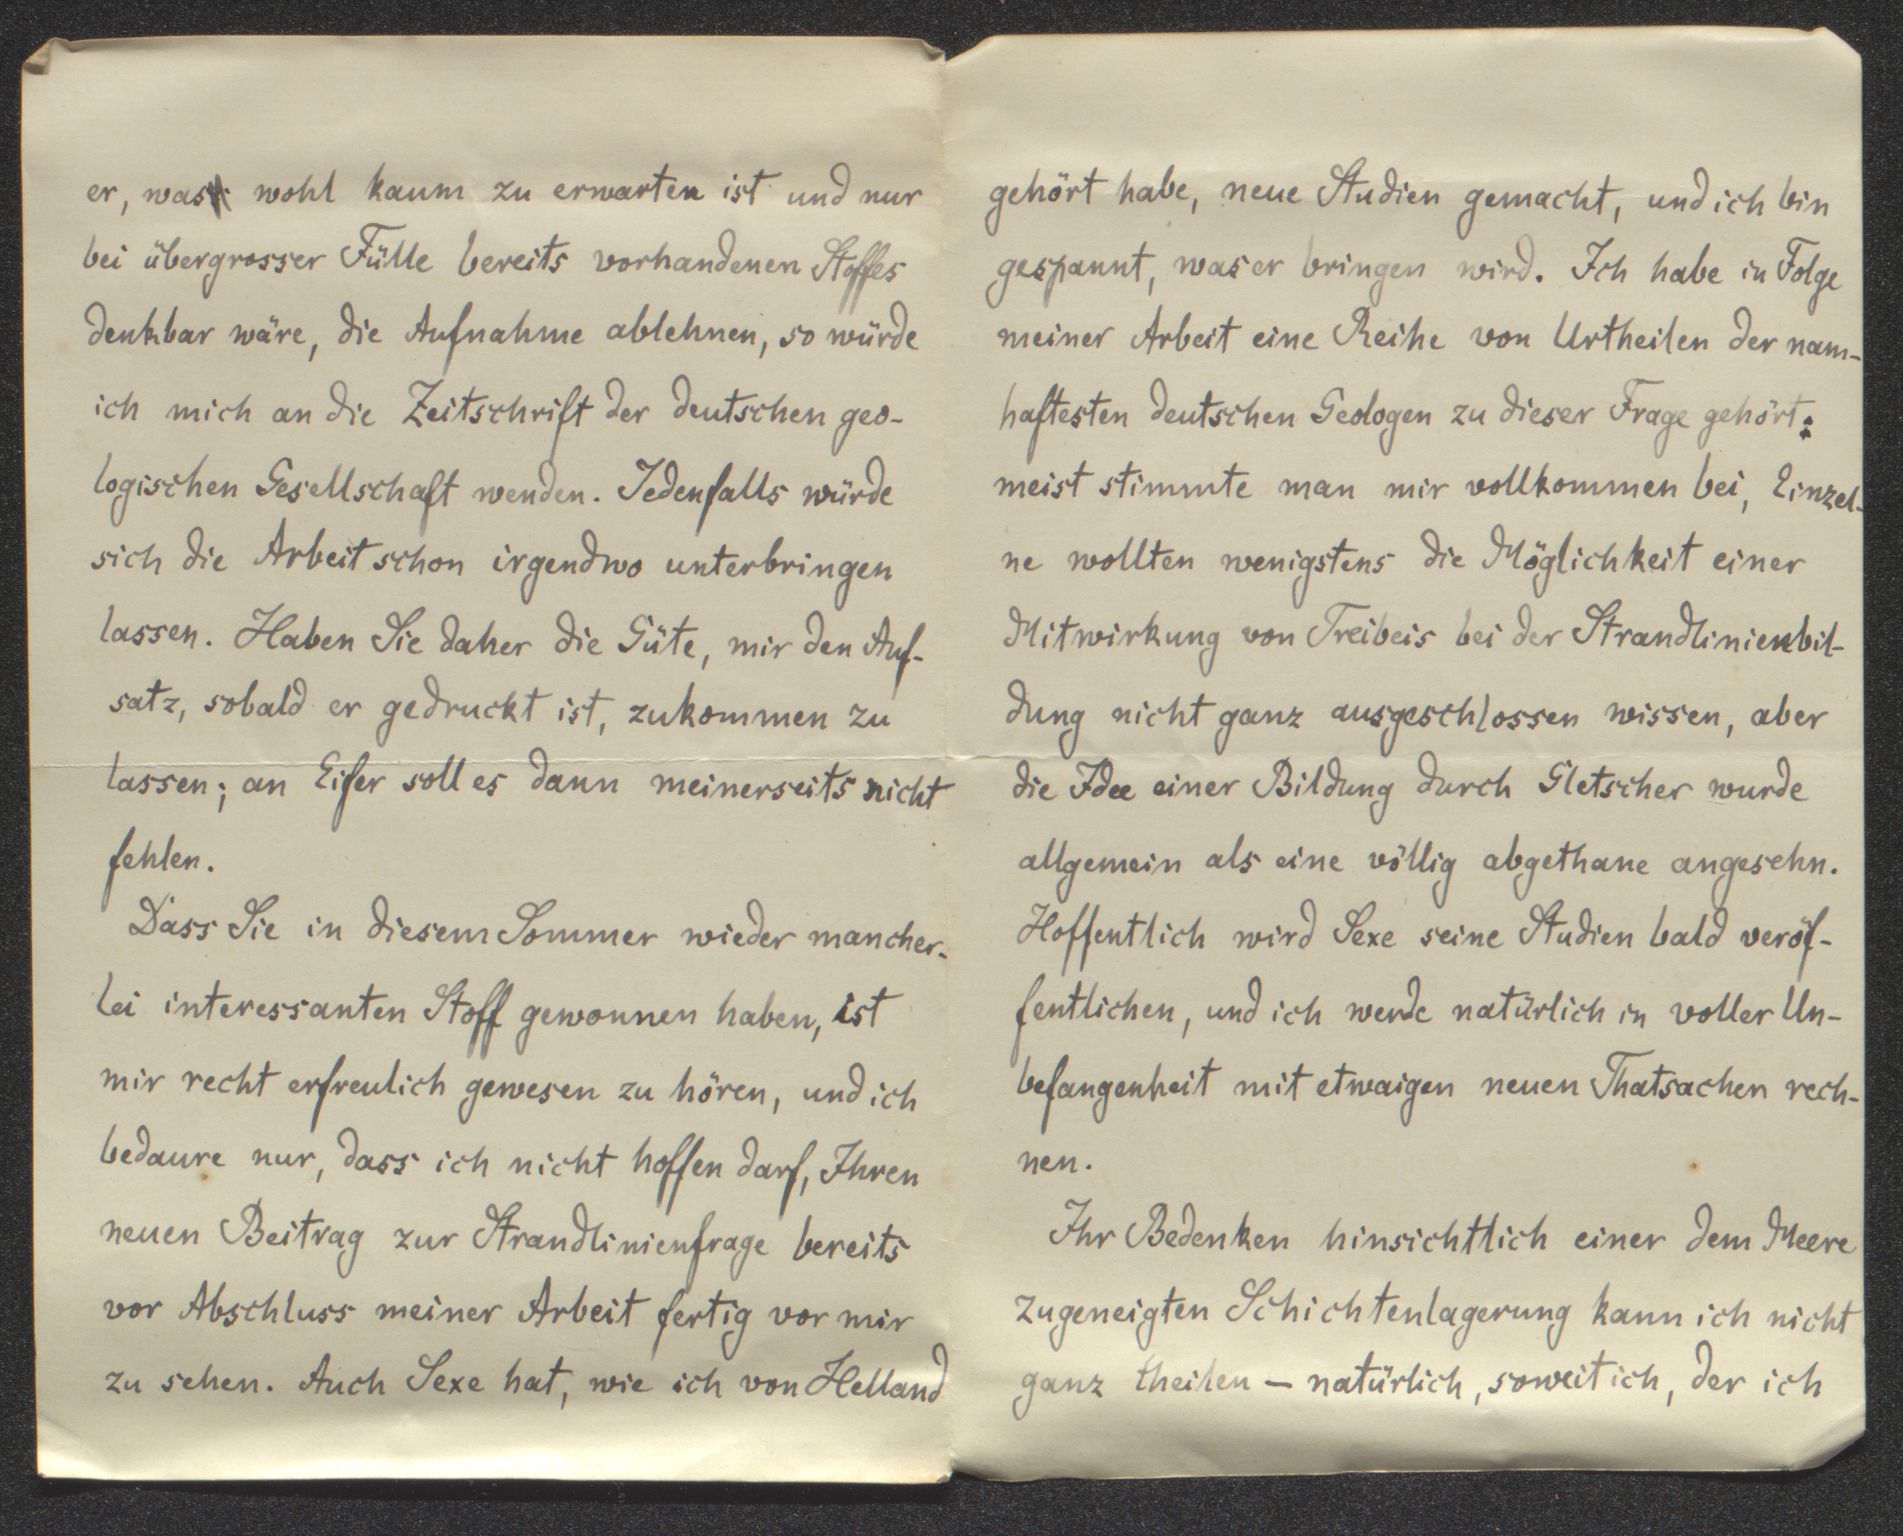 er, was wohl kaum zu erwarten ist und nur
bei übergrosser Fülle bereits vorhandenen Stoffes
denkbar wäre, die Aufnahme ablehnen, so würde
ich mich an die Zeitschrift der deutschen geo-
logischen Gesellschaft wenden. Jedenfalls würde
sich die Arbeit schon irgendwo unterbringen
lassen. Haben Sie daher die Güte, mir den Auf-
satz, sobald er gedruckt ist, zukommen zu
lassen; an Eifer soll es dann meinerseits nicht
fehlen.
Dass Sie in diesem Sommer wieder mancher-
lei interessanten Stoff gewonnen haben, ist
mir recht erfreulich gewesen zu hören, und ich
bedaure nur, dass ich nicht hoffen darf, Ihren
neuen Beitrag zur Strandlinienfrage bereits
vor Abschluss meiner Arbeit fertig vor mir
zu sehen. Auch Sexe hat, wie ich von Helland
gehört habe, neue Studien gemacht, und ich bin
gespannt, was er bringen wird. Ich habe in Folge
meiner Arbeit eine Reihe von Urtheilen der nam-
haftesten deutschen Geologen zu dieser Frage gehört:
meist stimmte man mir vollkommen bei, Einzel-
ne wollten wenigstens die Möglichkeit einer
Mitwirkung von Treibeis bei der Strandlinienbil-
dung nicht ganz ausgeschlossen wissen, aber
die Idee einer Bildung durch Gletscher wurde
allgemein als eine völlig abgethane angesehn.
Hoffentlich wird Sexe seine Studien bald veröf-
fentlichen, und ich werde natürlich in voller Un-
befangenheit mit etwaigen neuen Thatsachen rech-
nen.
Ihr Bedenken hinsichtlich einer dem Meere
zugeneigten Schichtenlagerung kann ich nicht
ganz theilen – natürlich, soweit ich, der ich